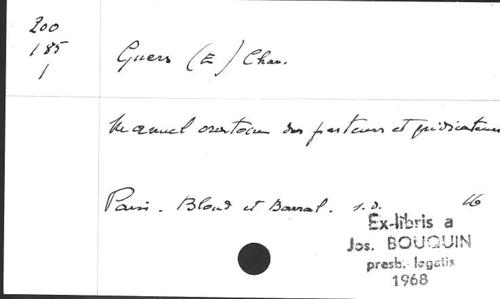 200
185
1
Guers (E) Chan.
Manuel oratoire des pasteurs et prédicateurs
Paris. Bloud et Barral. s.d. 16
Ex-libris a
Jos. BOUQUIN
presb. legatis
1968